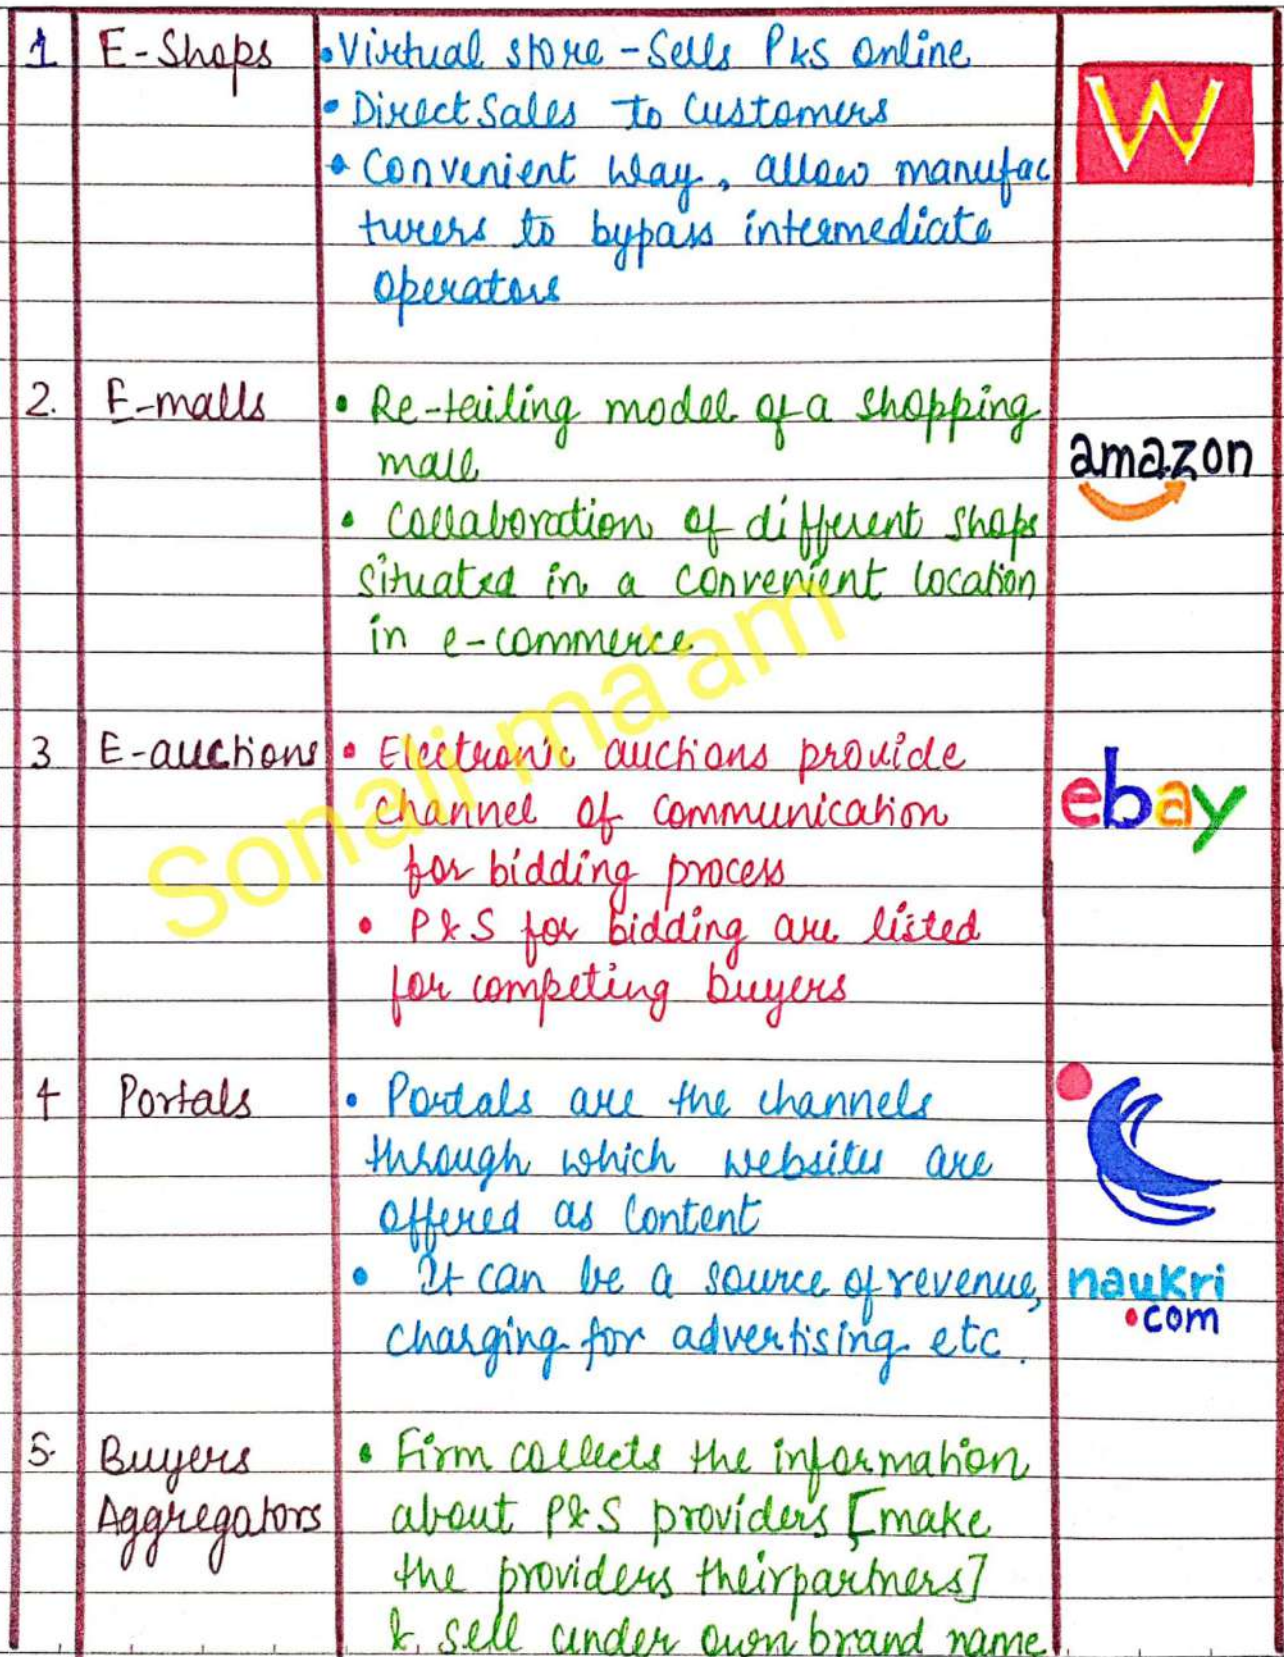 1 E-Shops • Virtual store - Sells P&S online
• Direct Sales to Customers
• Convenient way, allow manufac
turers to bypass intermediate
operators
W
2. E-malls • Re-tailing model of a shopping
mall
• Collaboration of different shops
situated in a convenient location
in e-commerce
amazon
3 E-auctions • Electronic auctions provide
channel of communication
for bidding process
• P&S for bidding are listed
for competing buyers
ebay
4 Portals • Portals are the channels
through which websites are
offered as content
• It can be a source of revenue,
charging for advertising etc.
naukri
.com
5. Buyers
Aggregators
• Firm collects the information
about P&S providers [make
the providers their partners]
& sell under own brand name
Sonali ma'am